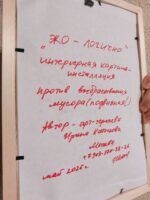 „ЭКО - ЛОГИЧНО"
интерьерная картина-
инсталляция
против выбрасывания
мусора
Автор - арт-терапевт
Ирина
Москва
май 2026г